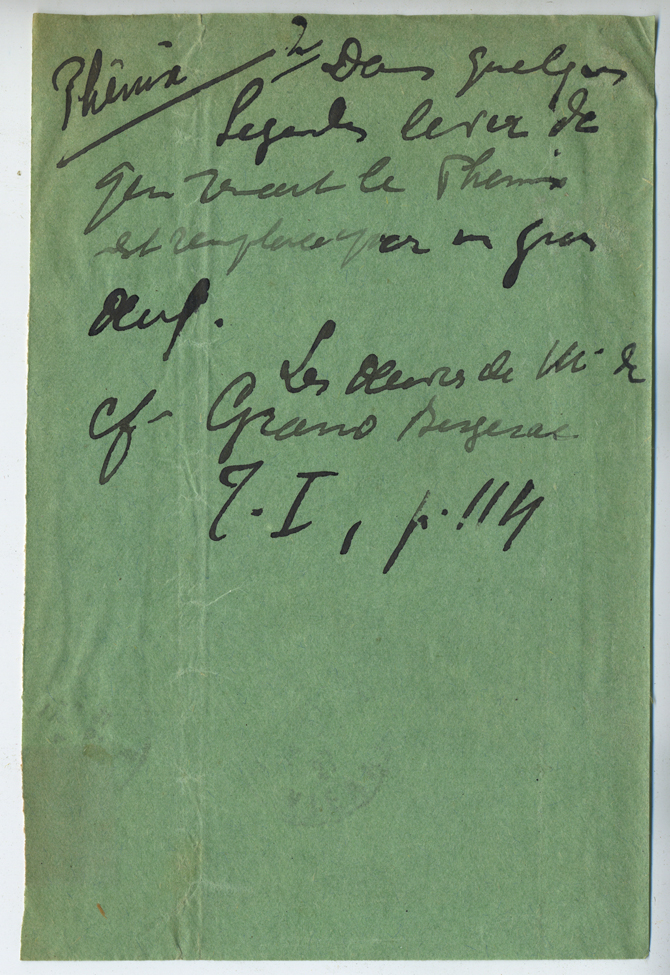 Phénix 2 Dans quelques
Légendes le ver de
qui renait le Phénix
est remplacé par un gros
oeuf.
Les oeuvres de Mr de
cf- Cyrano Bergerac
T. I, p. 114